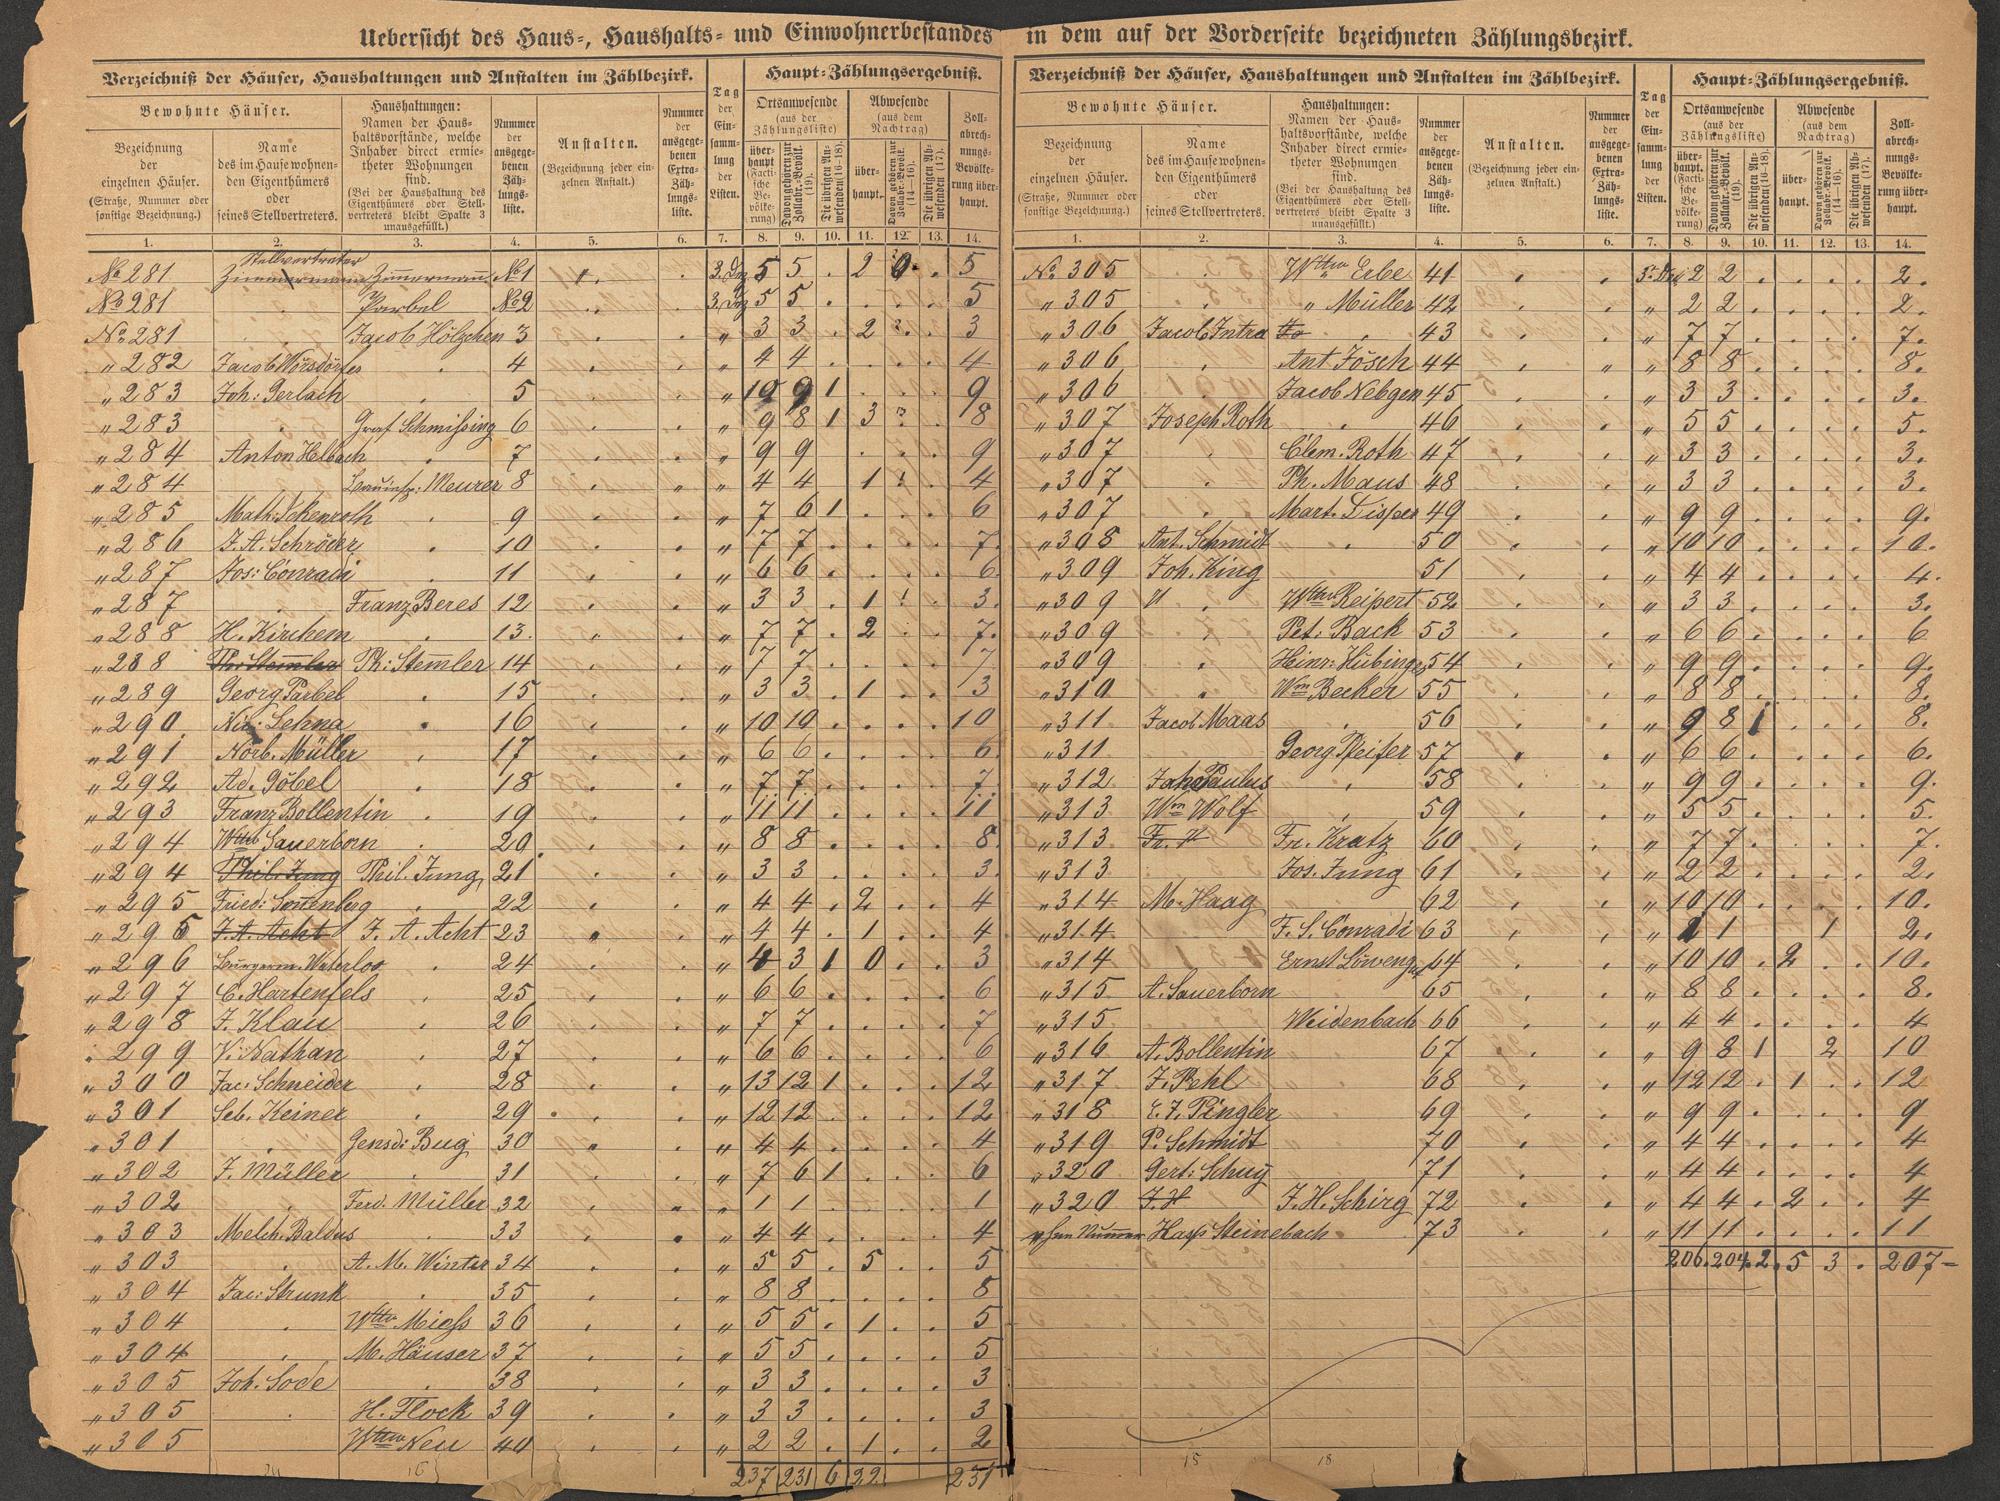 Uebersicht des Haus-, Haushalts- und Einwohnerbestandes in dem auf der Vorderseite bezeichneten Zählungsbezirk.
Verzeichniß der Häuser, Haushaltungen und Anstalten im Zählbezirk.
Tag der Ein- samm- lung der Listen.
Haupt-Zählungsergebniß.
Bewohnte Häuser.
Haushaltungen: Namen der Haus- haltsvorstände, welche Inhaber direct ermie- theter Wohnungen sind. (Bei der Haushaltung des Eigenthümers oder Stell- vertreters bleibt Spalte 3 unausgefüllt.)
Nummer der ausgege- benen Zäh- lungs- liste.
Anstalten. (Bezeichnung jeder ein- zelnen Anstalt.)
Nummer der ausgege- benen Extra- Zäh- lungs- liste.
Ortsanwesende (aus der Zählungsliste)
Abwesende (aus dem Nachtrag)
Zoll- abrech- nungs- Bevölke- rung über- haupt.
Bezeichnung der einzelnen Häuser. (Straße, Nummer oder sonstige Bezeichnung.)
Name des im Hause wohnen- den Eigenthümers oder seines Stellvertreters.
über- haupt (Facti- sche Be- völke- rung)
Davon gehören zur Zollabr.-Bevölk. (19).
Die übrigen An- wesenden (16-18).
über- haupt.
Davon gehören zur Zollabr.-Bevölk. (14-16).
Die übrigen Ab- wesenden (17).
1. 2. 3. 4. 5. 6. 7. 8. 9. 10. 11. 12. 13. 14.
Stellvertreter
No 281 Zimmermann Zimmermann No 1 3. Dez 5 5 . 2 0 . 5
No 281 Parbel No 2 3. Dez 5 5 5
No 281 Jacob Hölzchen 3 " 3 3 . 2 3
" 282 Jacob Wörsdörfer 4 " 4 4 4
" 283 Joh: Gerlach 5 " 10 9 1 9
" 283 Graf Schmißing 6 " 9 8 1 3 8
" 284 Anton Helbach 7 " 9 9 9
" 284 Meurer 8 " 4 4 1 4
" 285 Math: Ickenroth 9 " 7 6 1 6
" 286 J. A. Schröder 10 " 7 7 7.
" 287 Jos: Conradi 11 " 6 6 6.
" 287 Franz Beres 12 " 3 3 . 1 3.
" 288 H. Kirchem 13. " 7 7 . 2 7.
" 288 Ph: Stemler Ph: Stemler 14 " 7 7 7
" 289 Georg Parbel 15 " 3 3 . 1 3
" 290 Nic: Lehna 16 " 10 10 10
" 291 Norb. Müller 17 " 6 6 6.
" 292 Ad. Göbel 18 " 7. 7. 7.
" 293 Franz Bollentin 19 " 11 11 11
" 294 Wttwe Sauerborn 20 " 8 8 8.
" 294 Phil. Jung Phil. Jung 21 " 3 3 3.
" 295 Fried: Sonnenberg 22 " 4 4 . 2 4
" 295 J. A. Acht J. A. Acht 23 " 4 4 . 1 4
" 296 Bürgerm. Waterloo 24 " 4 3 1 0 3
" 297 C. Hartenfels 25 " 6 6 6
" 298 J. Klau 26 " 7 7 7
" 299 V. Nathan 27 " 6 6 6
" 300 Jac: Schneider 28 " 13 12 1 12
" 301 Seb. Keiner 29 " 12 12 12
" 301 Gensd: Bug 30 " 4 4 4
" 302 J. Müller 31 " 7 6 1 6
" 302 Ferd. Müller 32 " 1 1 1
" 303 Melch. Baldus 33 " 4 4 4
" 303 A. M. Winter 34 " 5 5 . 5 5
" 304 Jac: Strunk 35 " 8 8 8
" 304 Wttwe Miess 36 " 5 5 . 1 5
" 304 M. Häuser 37 " 5 5 5
" 305 Joh. Sode 38 " 3 3 3
" 305 H. Flock 39 " 3 3 3
" 305 Wttwe Neu 40 " 2 2 . 1 2
237 231 6 22 231
Verzeichniß der Häuser, Haushaltungen und Anstalten im Zählbezirk.
Tag der Ein- samm- lung der Listen.
Haupt-Zählungsergebniß.
Bewohnte Häuser.
Haushaltungen: Namen der Haus- haltsvorstände, welche Inhaber direct ermie- theter Wohnungen sind. (Bei der Haushaltung des Eigenthümers oder Stell- vertreters bleibt Spalte 3 unausgefüllt.)
Nummer der ausgege- benen Zäh- lungs- liste.
Anstalten. (Bezeichnung jeder ein- zelnen Anstalt.)
Nummer der ausgege- benen Extra- Zäh- lungs- liste.
Ortsanwesende (aus der Zählungsliste)
Abwesende (aus dem Nachtrag)
Zoll- abrech- nungs- Bevölke- rung über- haupt.
Bezeichnung der einzelnen Häuser. (Straße, Nummer oder sonstige Bezeichnung.)
Name des im Hause wohnen- den Eigenthümers oder seines Stellvertreters.
über- haupt. (Facti- sche Be- völke- rung)
Davon gehören zur Zollabr.-Bevölk. (19).
Die übrigen An- wesenden (16-18).
über- haupt.
Davon gehören zur Zollabr.-Bevölk. (14-16).
Die übrigen Ab- wesenden (17).
1. 2. 3. 4. 5. 6. 7. 8. 9. 10. 11. 12. 13. 14.
No 305 Wttwe Erbe 41 3. Dez 2 2 2.
" 305 " Müller 42 " 2 2 2.
" 306 Jacob Intra 43 " 7 7 7.
" 306 Ant Fösch 44 " 8 8 8.
" 306 Jacob Nebgen 45 " 3 3 3.
" 307 Joseph Roth 46 " 5 5 5.
" 307 Clem. Roth 47 " 3 3 3.
" 307 Ph. Maus 48 " 3 3 3.
" 307 Mart. Disper 49 " 9 9 9.
" 308 Ant. Schmidt 50 " 10 10 10.
" 309 Joh. King 51 " 4 4 4.
" 309 Wttwe Reipert 52 " 3 3 3.
" 309 Pet: Back 53 " 6 6 6
" 309 Heinr: Hübinger 54 " 9 9 9.
" 310 Wm Becker 55 " 8 8 8.
" 311 Jacob Maas 56 " 9 8 1 8.
" 311 Georg Pfeifer 57 " 6 6 6.
" 312 Paulus 58 " 9 9 9.
" 313 Wm Wolf 59 " 5 5 5.
" 313 Fr. K Fr. Kratz 60 " 7 7 7.
" 313 Jos. Jung 61 " 2 2 2.
" 314 M. Haag 62 " 10 10 10.
" 314 F. S. Conradi 63 " 1 1 1 2.
" 314 Ernst Löwenguth 64 " 10 10 . 2 10.
" 315 A. Sauerborn 65 " 8 8 8.
" 315 Weidenbach 66 " 4 4 4
" 316 A. Bollentin 67 " 9 8 1 2 10
" 317 J. Pehl 68 " 12 12 . 1 12
" 318 C. F. Pingler 69 " 9 9 9
" 319 P. Schmidt 70 " 4 4 4
" 320 Gert: Schuy 71 " 4 4 4
" 320 J. H J. H. Schirg 72 " 4 4 . 2 4
ohne Nummer Hasp Steinebach 73 " 11 11 11
206. 204. 2. 5 3 . 207
15 18